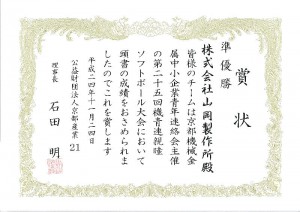 賞状
準優勝
株式会社山岡製作所殿
皆様のチームは京都機械金
属中小企業青年連絡会主催
の第二十五回機青連親睦
ソフトボール大会において
頭書の成績をおさめられま
したのでこれを賞します
平成二四年十一月二四日
公益財団法人京都産業21
理事長 石田 明